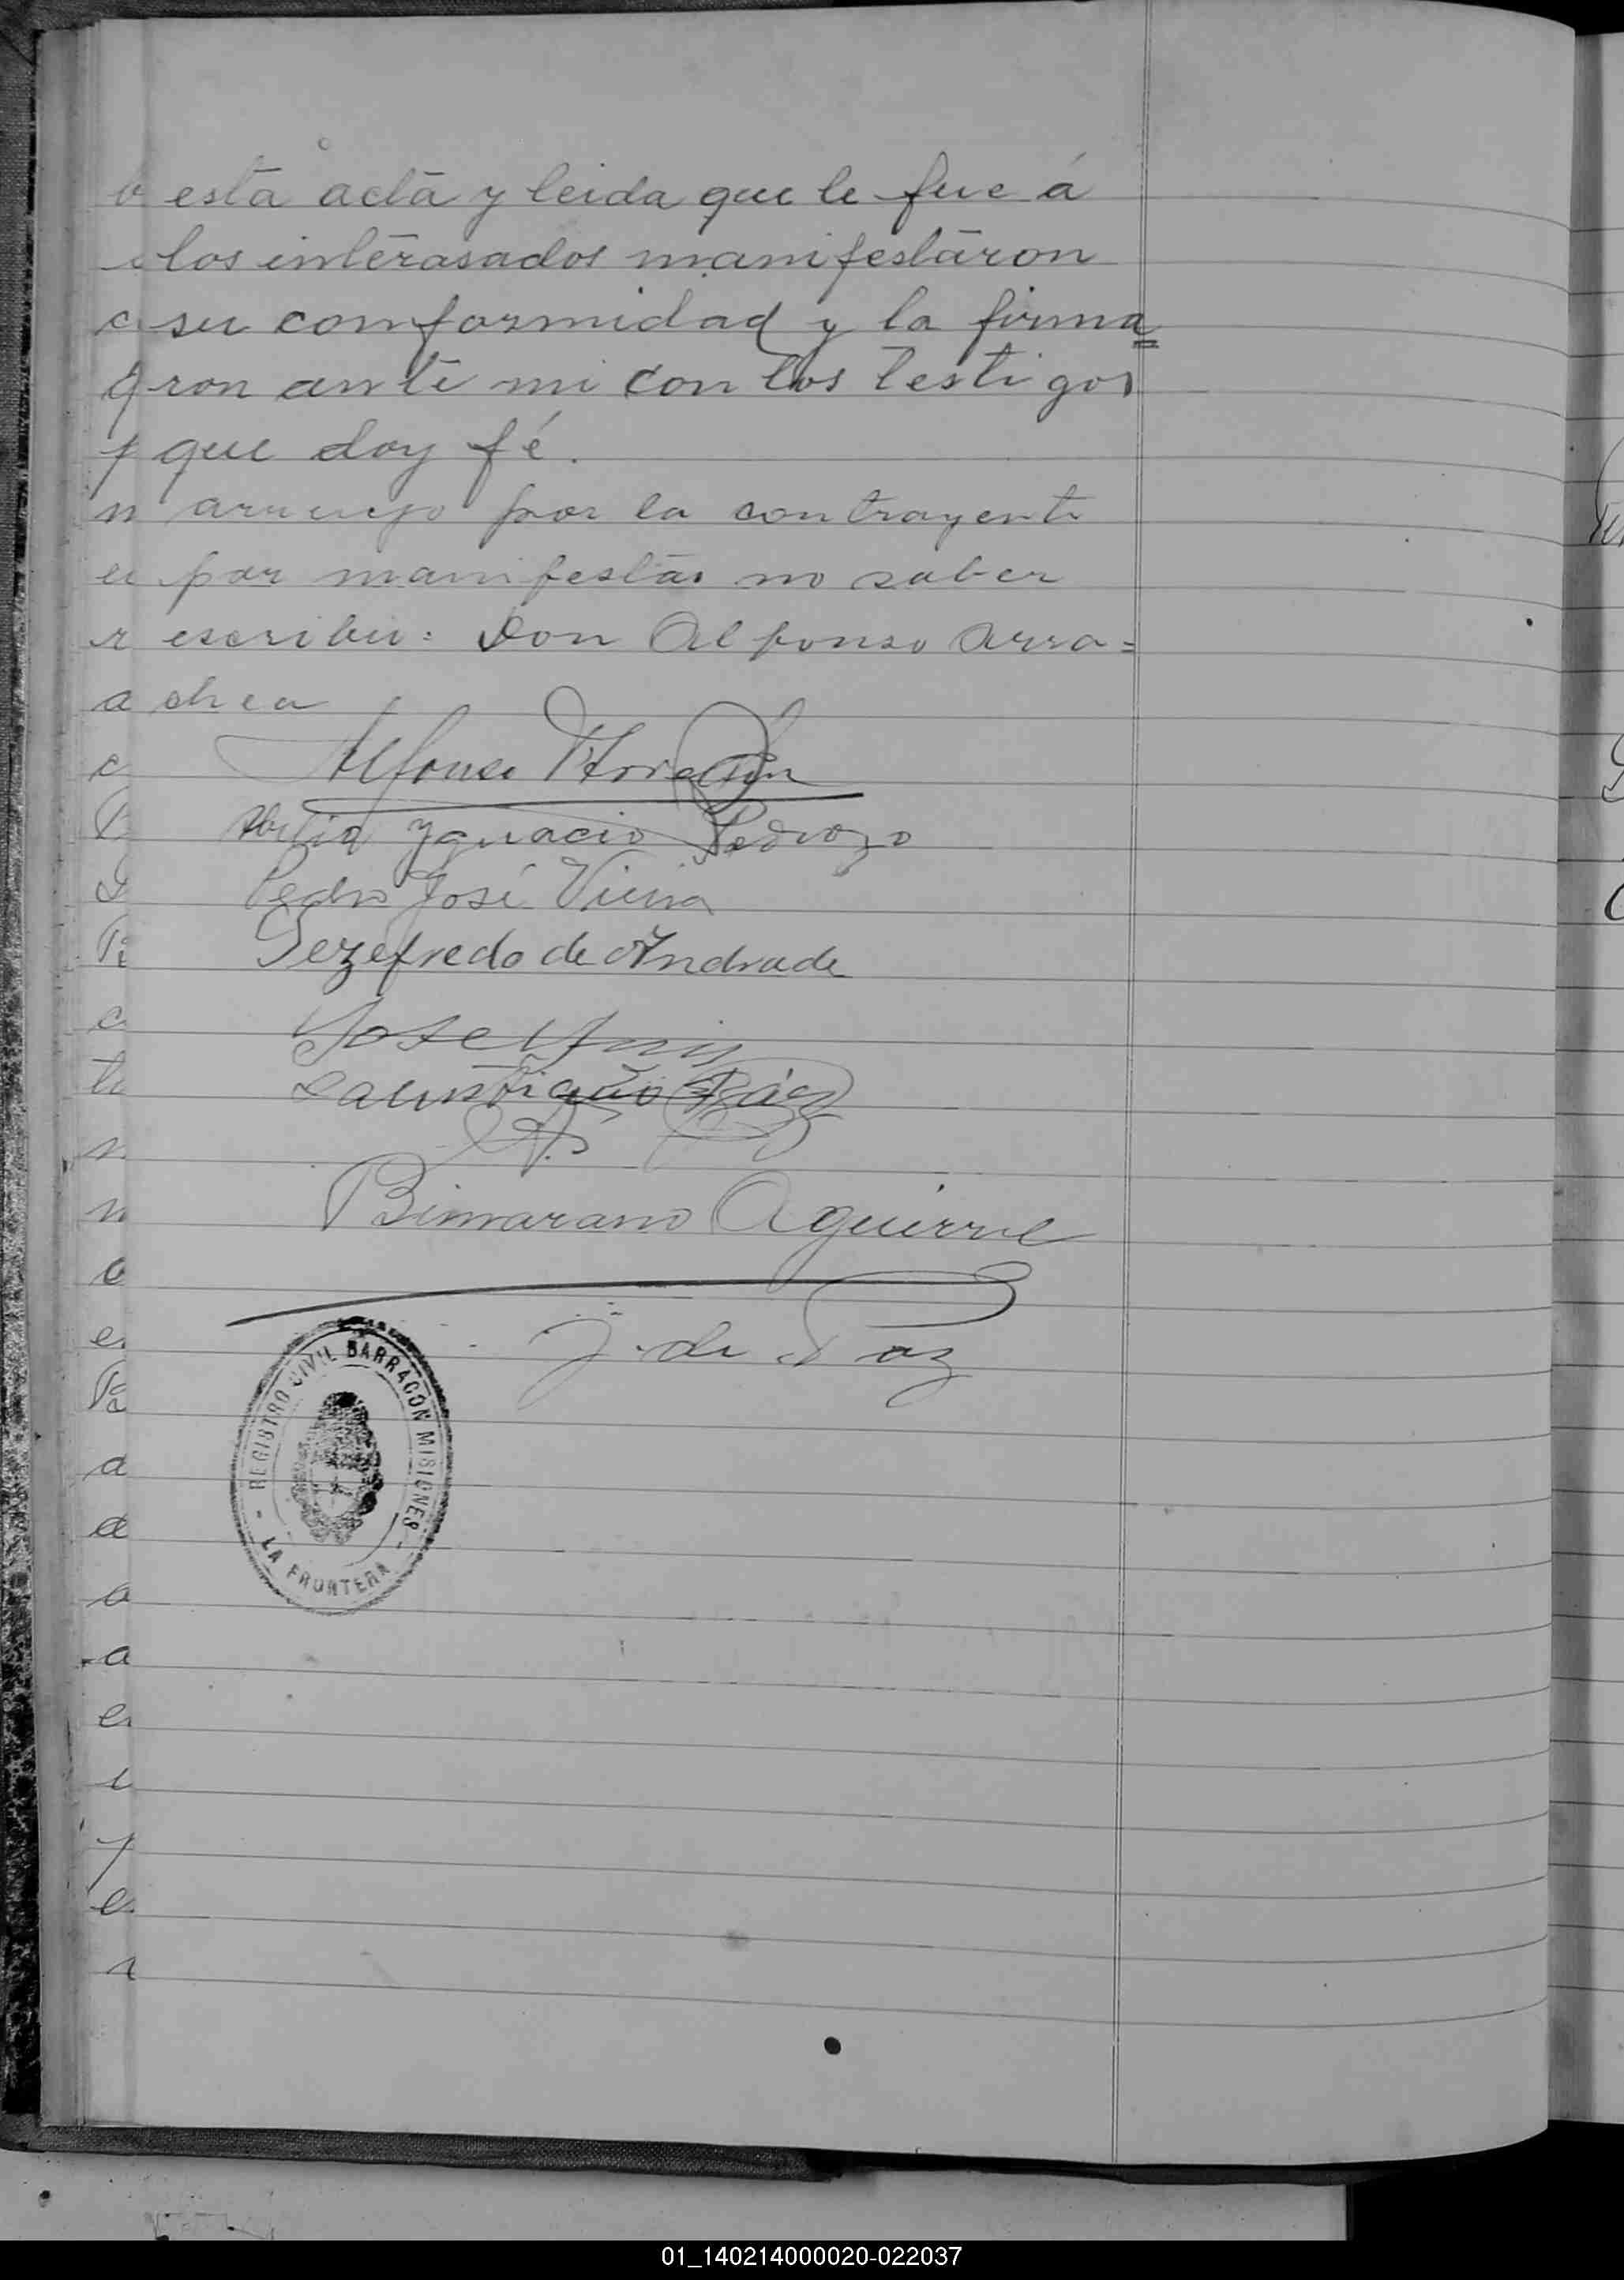 esta acta y leida que le fue á
los interasados manifestaron
su conformidad y la firma=
ron ante mi con los testigos
que doy fé.
arruego por la contrayente
por manifestar no saber
escribir: Don Alfonso Arra=
chea
Alfonso Arrachea
Ygnacio Pedrozo
Pedro José Vieira
Gezefredo de Andrade
Jose
Báez
Bimarano Aguirre
J. de Paz
REGISTRO CIVIL BARRACON MISIONES
- LA FRONTERA -
01_140214000020-022037